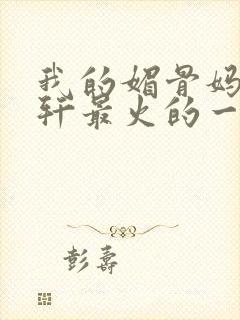 我的媚骨妈
轩最火的一
彭壽